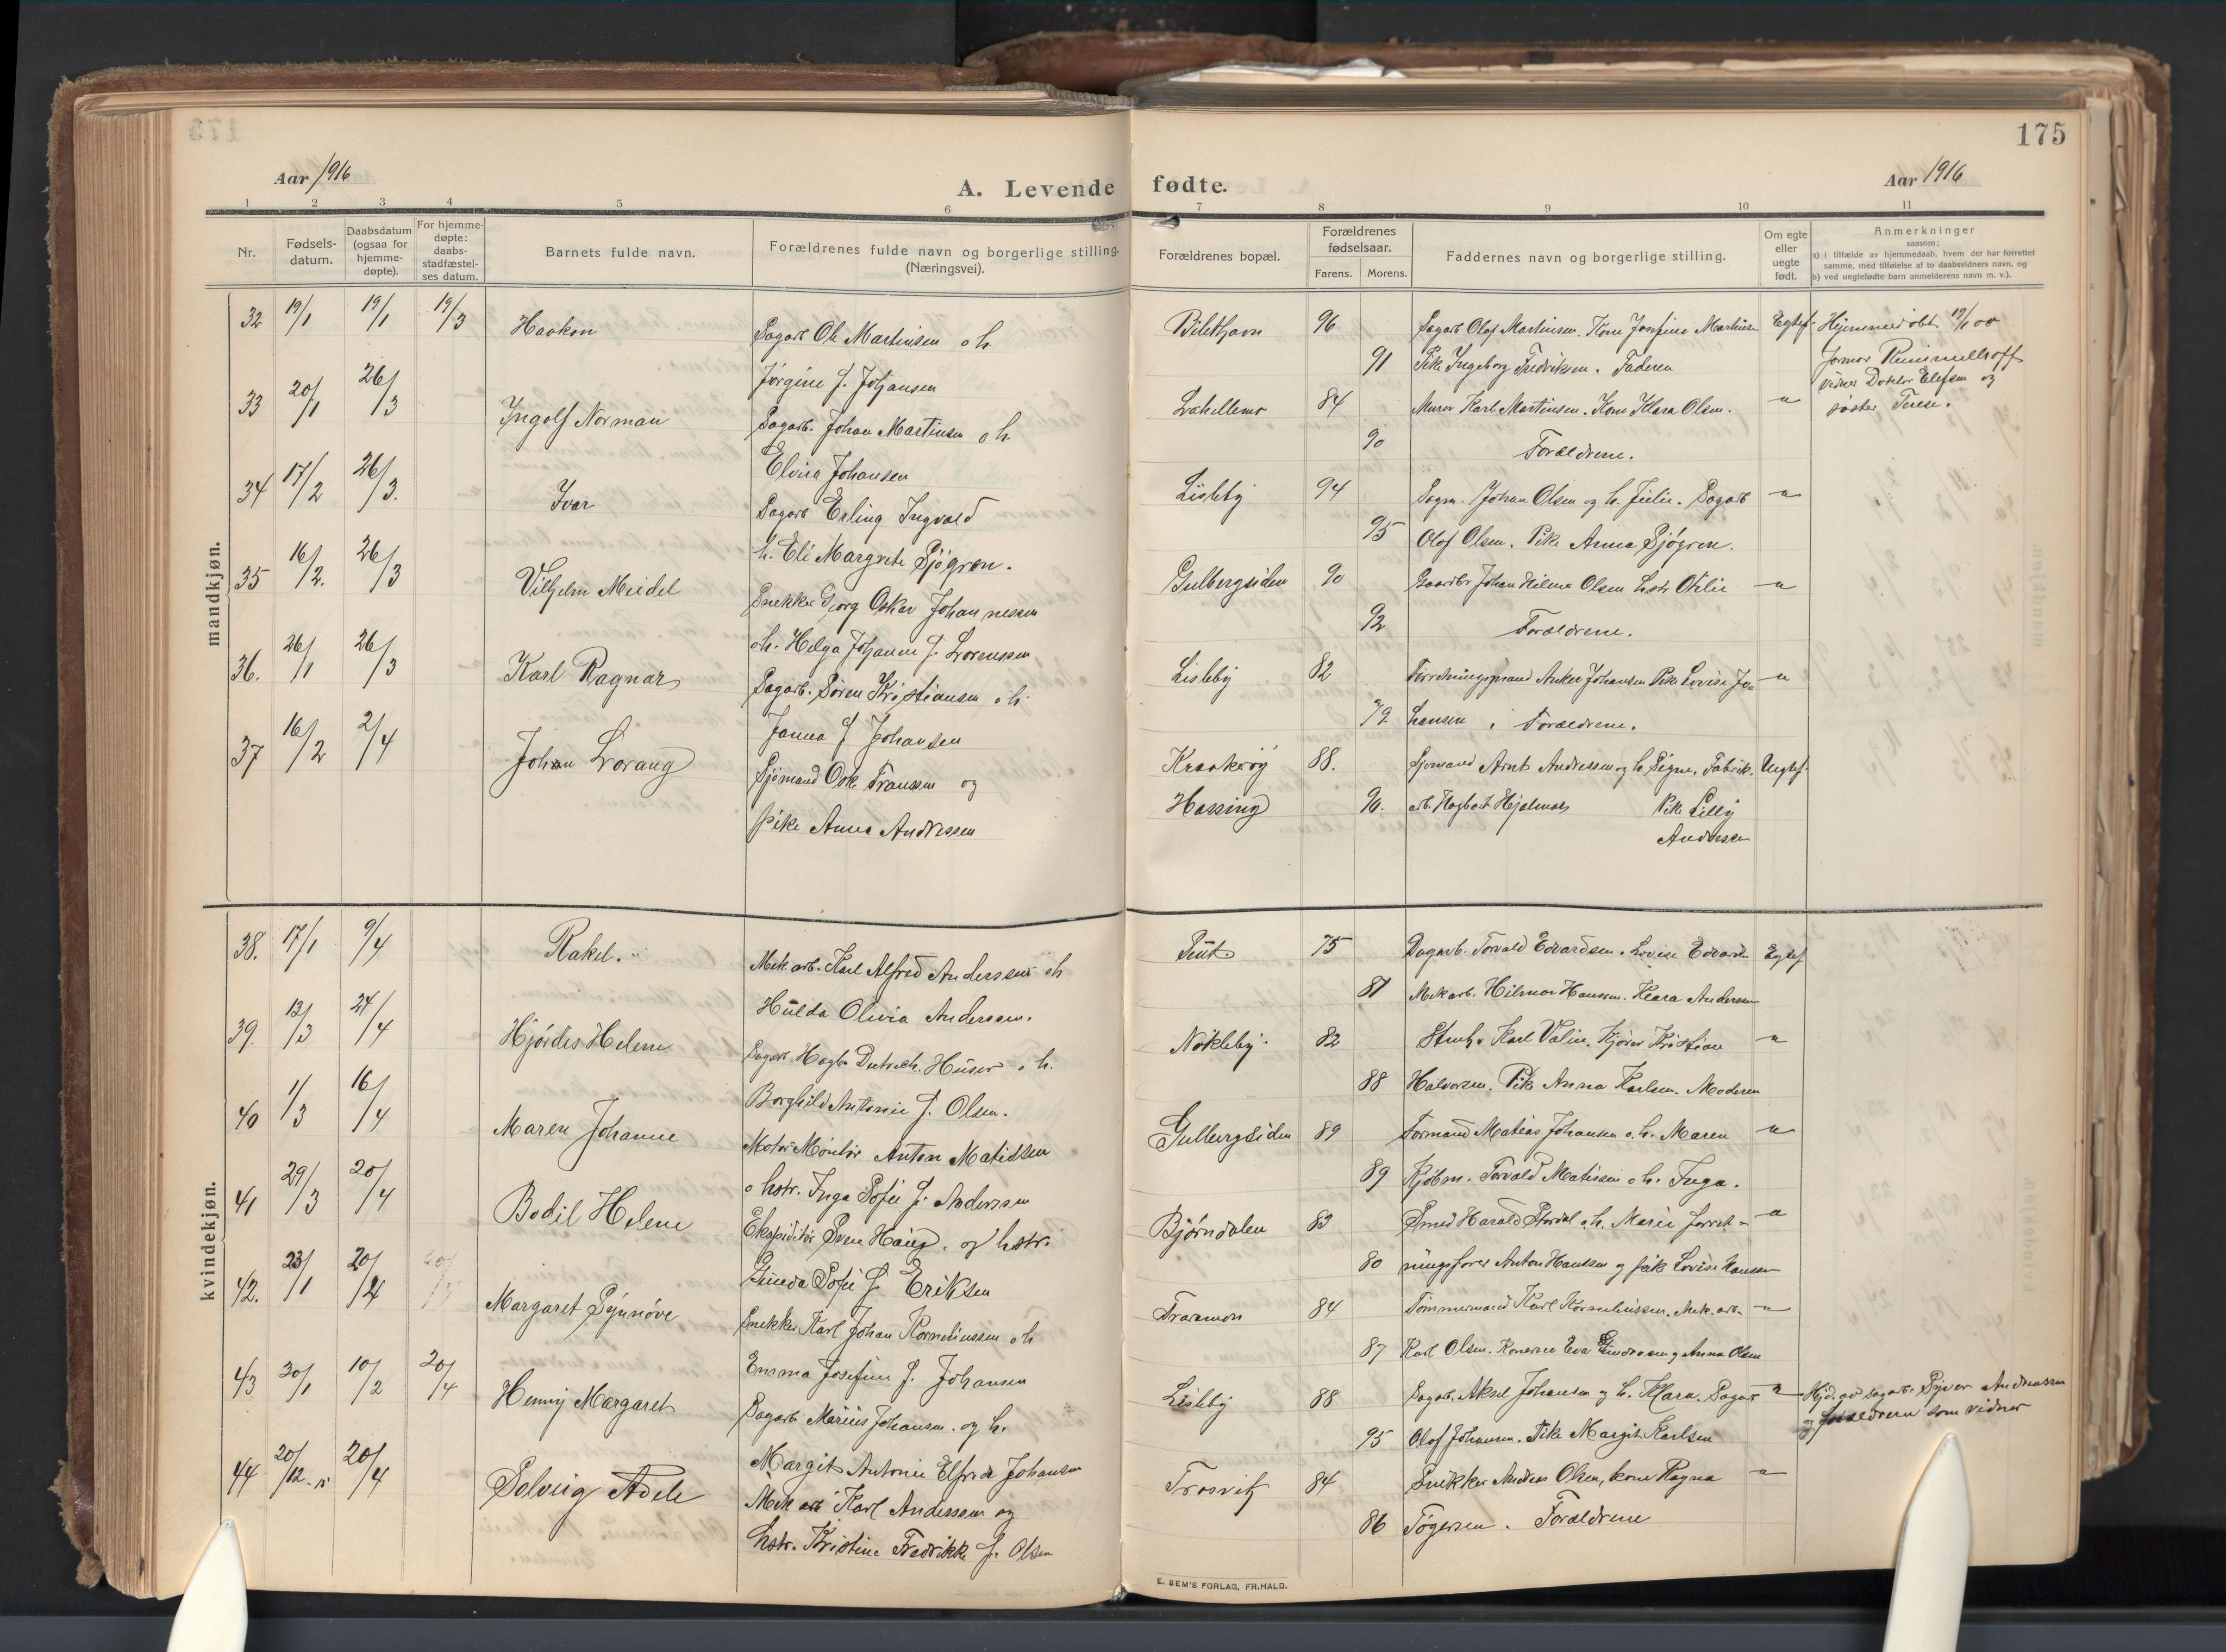 175
Aar 1916
A. Levende fødte.
Aar 1916
1 2 3 4 5 6 7 8 9 10 11
Nr.
Fødsels-
datum.
Daabsdatum
(ogsaa for
hjemme-
døpte).
For hjemme-
døpte:
daabs-
stadfæstel-
ses datum.
Barnets fulde navn.
Forældrenes fulde navn og borgerlige stilling.
(Næringsvei).
Forældrenes bopæl.
Forældrenes
fødselsaar.
Farens. Morens.
Faddernes navn og borgerlige stilling.
Om egte
eller
uegte
født.
Anmerkninger
saasom:
a) i tilfælde av hjemmedaab, hvem der har forrettet
samme, med tilføielse af to daabsvidners navn, og
b) ved uegtefødte barn anmelderens navn m. v.).
mandkjøn.
32 19/1 19/1 19/3 Haakon
Sagarb Ole Martinsen o h.
Jørgine f. Johansen
96
91
Sagarb Olaf Martinsen. Kone Josefine Martinsen
Pike Ingeborg Fredriksen. Faderen
Egtef.
Hjemmedøbt 19/1
Doktor Elefsen og
søster Terese.
33 20/1 26/3 Ingolf Norman
Sagarb. Johan Martinsen o h.
Elvira Johansen
84
90
Murer Karl Martinsen. Kone Klara Olsen.
Forældrene.
34 17/2 26/3. Ivar
Sagarb Erling Ingvald
h. Eli Margrete Sjøgren.
Lisleby 94
95
Sagm. Johan Olsen og h. Julie. Sagarb
Olof Olsen. Pike Anna Sjøgren.
35 16/2. 26/3 Vilhelm Meidel
Snekker Georg Oskar Johannessen
o h. Helga Johanne f. Lorenssen
Gulbergsiden 90
92
Gaardbr Johan Hilmer Olsen hstr Otilie
Forældrene.
36. 26/1 26/3 Karl Ragnar
Sagarb. Søren Kristiansen o h.
Janna f Johansen
Lisleby 82
79
Forretningsmand Anker Johansen Pike Lovise Jo-
hansen. Forældrene.
37 16/2 2/4 Johan Lorang
Sjømand Osk Franssen og
pike Anna Andressen
Kraakerøy
Hassing
88.
90.
Sjømand Arnt Andressen og h. Signe. Fabrik.
arb. Hagbart Hjalmar Pike Lilly
Andressen
Uegtef.
kvindekjøn.
38. 17/1 9/4 Rakel.
Mek arb. Karl Alfred Anderssen o h
Hulda Olivia Anderssen.
75
81
Dagarb. Torvald Edvardsen. Lovise Edvards.
Mek arb. Hilmar Hanssen. Klara Anderssen
Egtef
39. 13/3 24/4 Hjørdis Helene
Borghild Antonie f. Olsen.
Nøkleby. 82
88
Karl Valin. Kjører Kristian
Halvorsen. Pike Anna Karlsen. Moderen
40 1/3 16/4 Maren Johanne
Motor Montør Anton Matissen
o hstr. Inga Sofie f. Anderssen
Gulbergsiden 89
89
Formand Matias Johansen o. h. Maren
Kjøbm. Torvald Matissen o h. Inga.
41 29/3 20/4 Bodil Helene
Ekspeditør Sven Haug. og hstr.
Gineda Sofie f. Eriksen
Bjørndalen 83
80
Smed Harald Stordal o h. Marie forret-
ningsfører Anton Hanssen og pike Lovise Hanssen
42. 23/1 20/4 Margaret Synnøve
Snekker Karl Johan Korneliussen o h
Emma Josefine f. Johansen
Traramon 84
87
Tømmermand Karl Korneliussen. Mek. arb.
Karl Olsen. Konerne Eva Eindrosen og Anna Olsen
43 30/1 10/2 20/4 Henny Margaret
Sagarb Marius Johansen. og h.
Margit Antonie Elfride Johansen
Lisleby 88
95
Sagarb. Aksel Johansen og h. Klara. Sagar
Olof Johansen. Pike Margit Karlsen
Hjd. av sagarb. Syver Andreassen
og forældrene som vidner
44 20/12-15 20/4 Solveig Adele
Mek arb Karl Anderssen og
hstr. Kristine Fredrikke f. Olsen
Trosvik 84
86
Snekker Andreas Olsen, kone Ragna
Tøgersen. Forældrene
E. SEM'S FORLAG, FR.HALD.